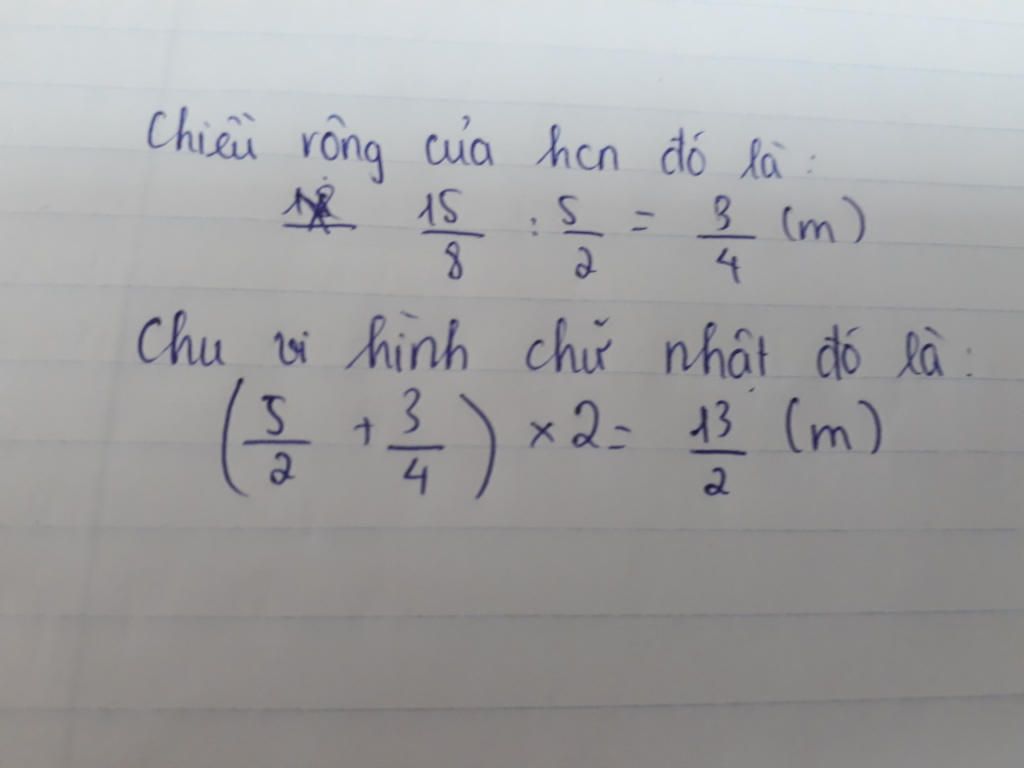 Chiều rộng của hcn đó là:
15/8 : 5/2 = 3/4 (m)
Chu vi hình chữ nhật đó là:
(5/2 + 3/4) × 2 = 13/2 (m)